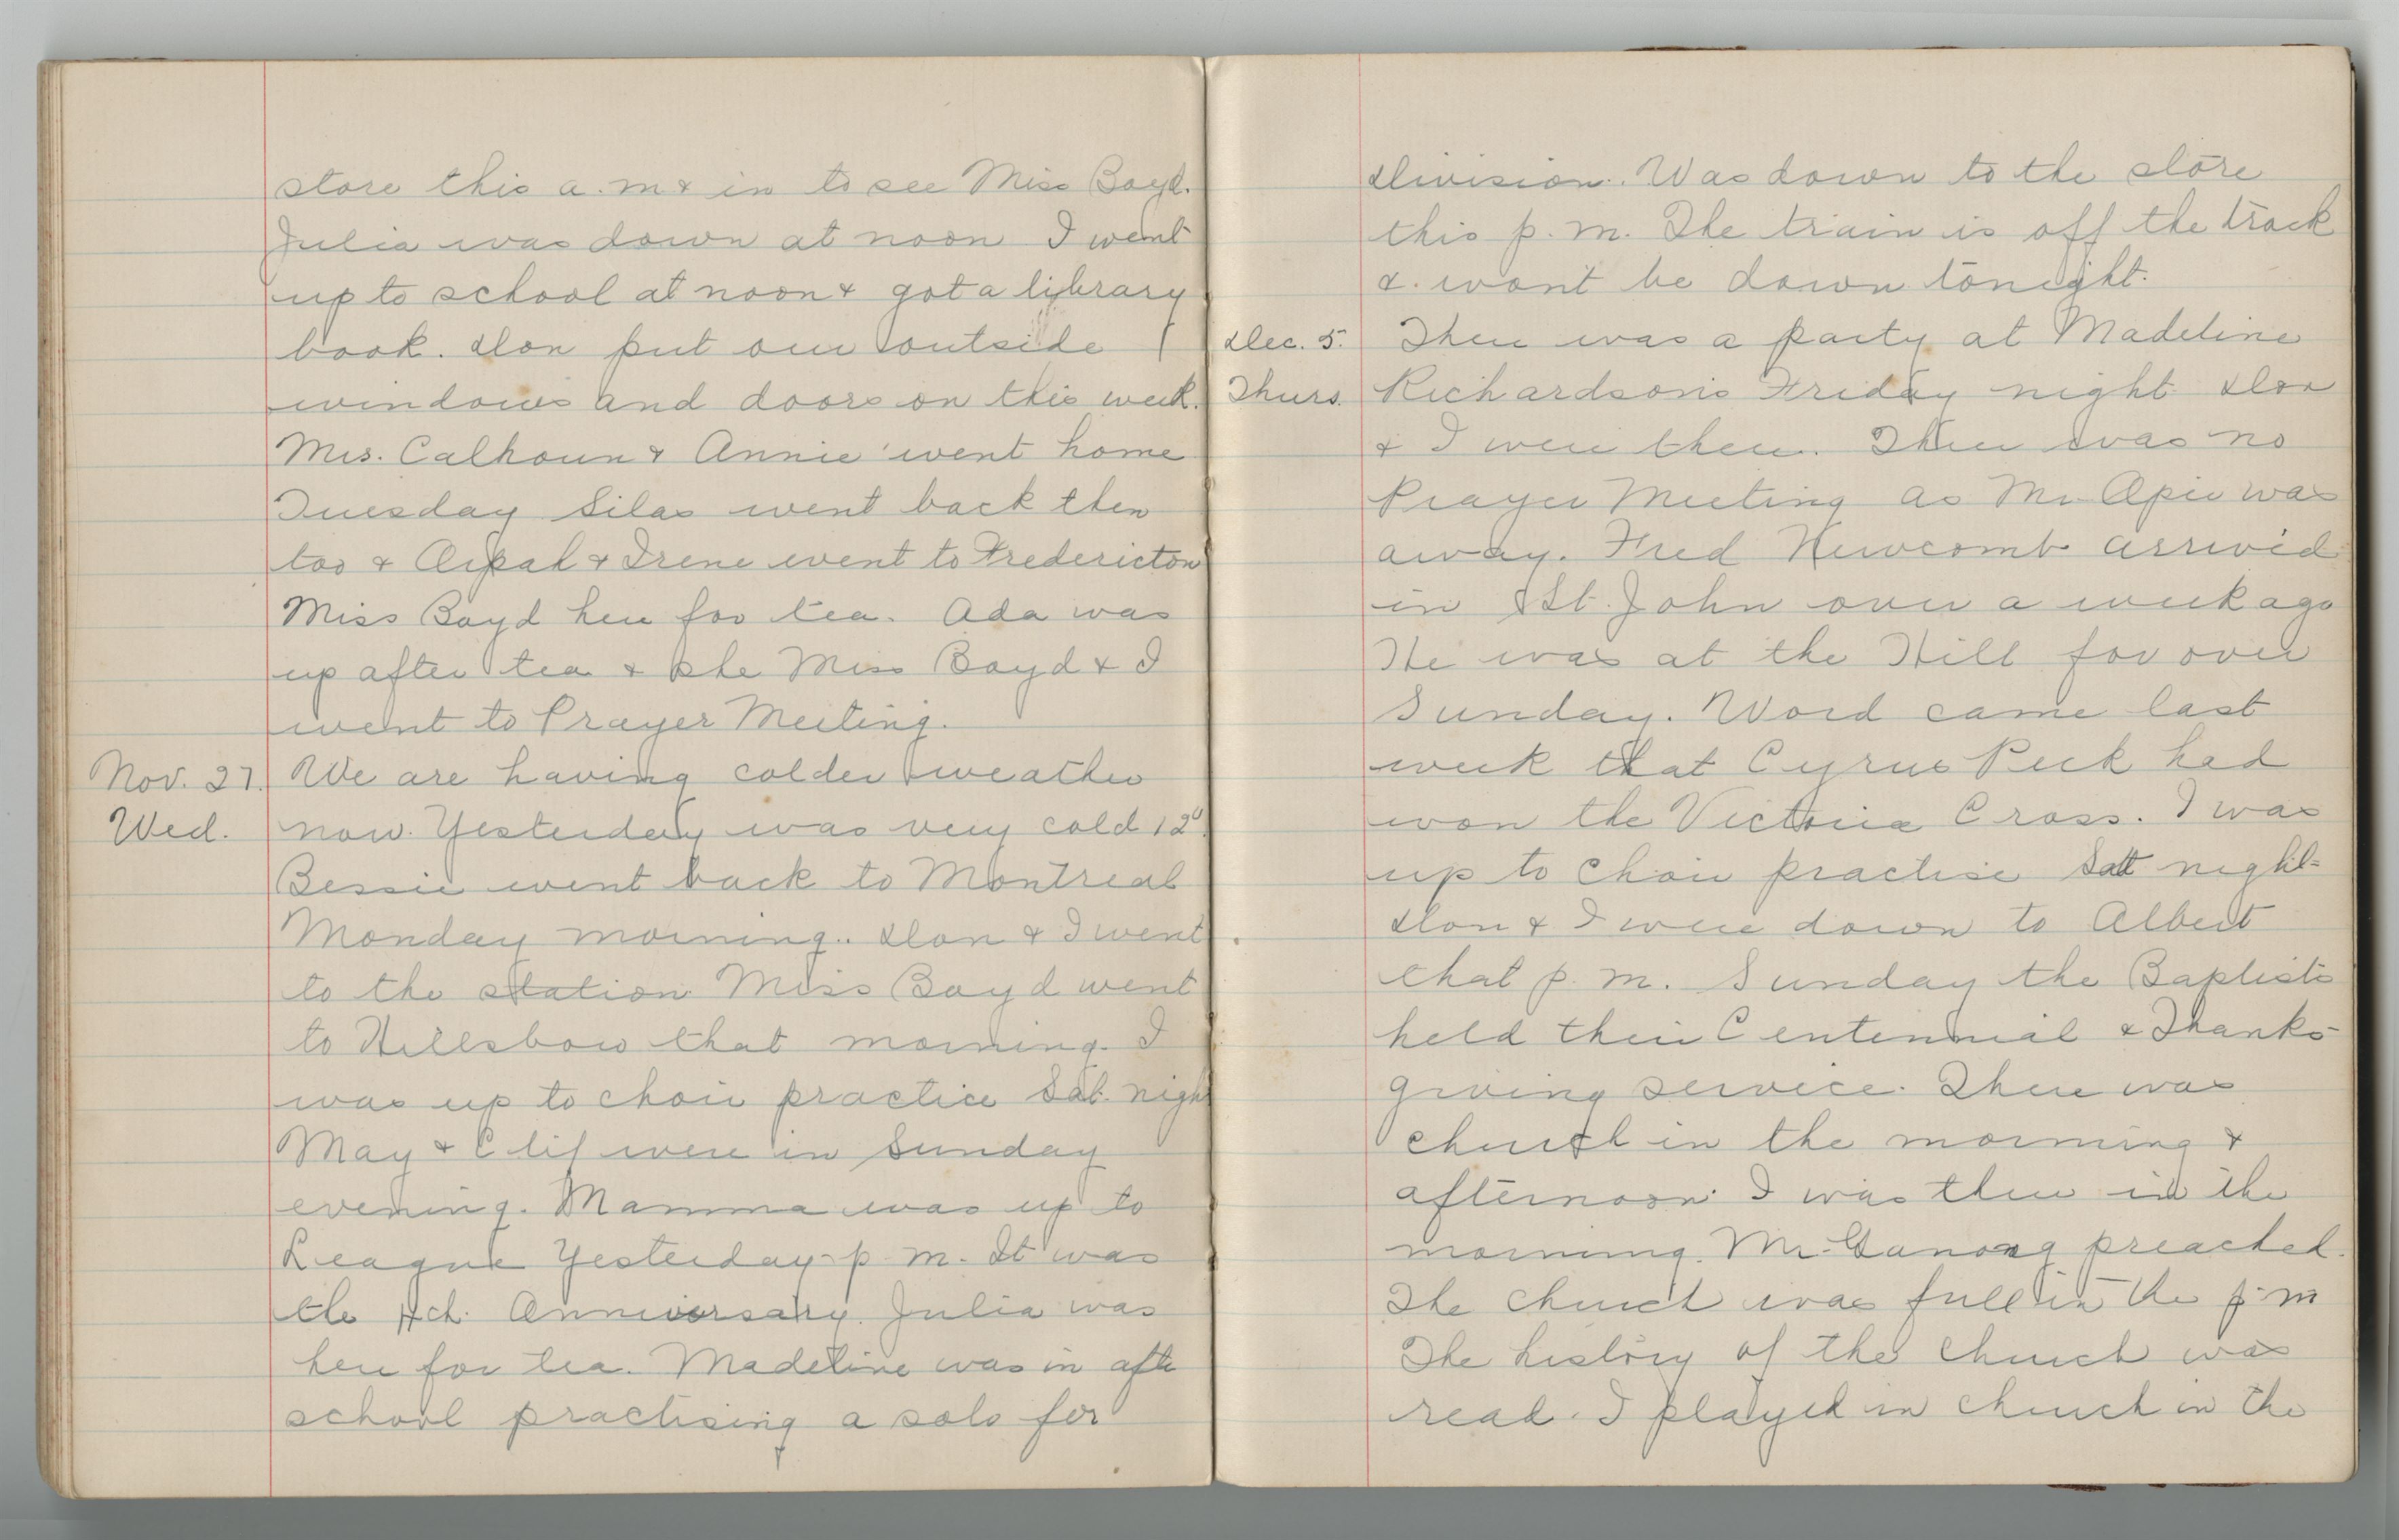 store this a.m & in to see Miss Boyd.
Julia was down at noon I went
up to school at noon & got a library
book. Don put our outside
windows and doors on this week.
Mrs. Calhoun & Annie went home
Tuesday Silas went back then
too & & Irene went to Fredericton
Miss Boyd here for tea. Ada was
up after tea & she Miss Boyd & I
went to Prayer Meeting.
Nov. 27. We are having colder weather
Wed. now. Yesterday was very cold 12°.
Bessie went back to Montreal
Monday morning.. Don & I went
to the station Miss Boyd went
to Hillsboro that morning. I
was up to choir practice Sat. night
May & Clif were in Sunday
evening. Mamma was up to
League Yesterday p.m. It was
the Anniversary. Julia was
here for tea. Madeline was in after
school practising a solo for
Division. Was down to the store
this p.m. The train is off the track
& wont be down tonight.
Dec. 5. There was a party at Madeline
Thurs. Richardson's Friday night Don
& I were there. There was no
Prayer Meeting as Mr. Opie was
away. Fred Newcomb arrived
in St. John over a week ago
He was at the Hill for over
Sunday. Word came last
week that Cyrus Peck had
won the Victoria Cross. I was
up to choir practise Sat night-
Don & I were down to Albert
that p.m. Sunday the Baptists
held their Centennial & Thanks-
giving service. There was
church in the morning &
afternoon. I was there in the
morning. Mr. Ganong preached.
The church was full in the p.m
The history of the church was
read. I played in church in the